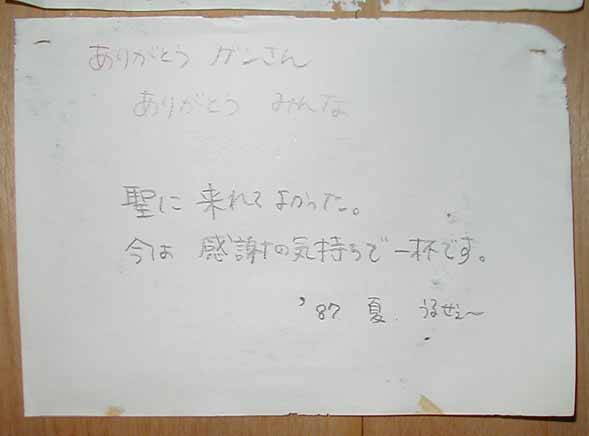 ありがとう ガンさん
ありがとう みんな
聖に 来れて よかった。
今は 感謝の気持ちで一杯です。
'87 夏. うるせぇ〜